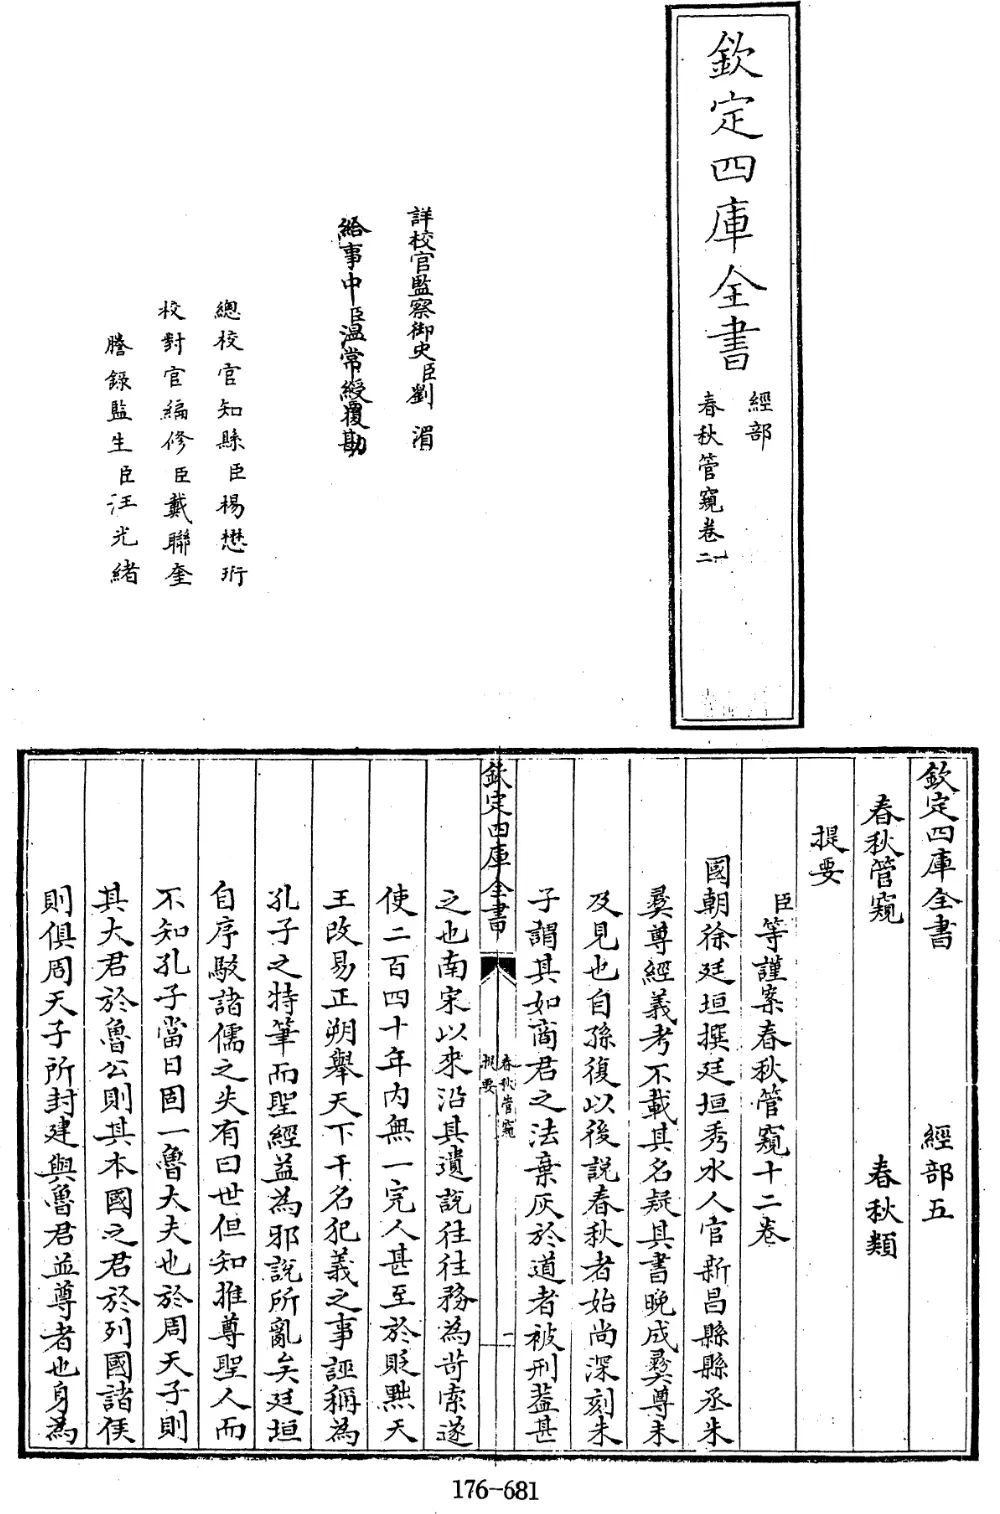 欽定四庫全書
經部
春秋管窺卷一二
詳校官監察御史臣劉湄
給事中臣溫常綬覆勘
總校官知縣臣楊懋珩
校對官編修臣戴聯奎
謄錄監生臣汪光緒
欽定四庫全書 經部五
春秋管窺 春秋類
提要
臣等謹案春秋管窺十二卷
國朝徐廷垣撰廷垣秀水人官新昌縣縣丞朱
彜尊經義考不載其名疑其書晚成彜尊未
及見也自孫復以後説春秋者始尚深刻朱
子謂其如商君之法棄灰於道者被刑葢甚
欽定四庫全書
春秋管窺
提要
一
之也南宋以來沿其遺説往往務為苛索遂
使二百四十年内無一完人甚至於貶黜天
王改易正朔舉天下干名犯義之事誣稱為
孔子之特筆而聖經益為邪説所亂矣廷垣
自序駁諸儒之失有曰世但知推尊聖人而
不知孔子當日固一魯大夫也於周天子則
其大君於魯公則其本國之君於列國諸侯
則俱周天子所封建與魯君並尊者也身為
176-681